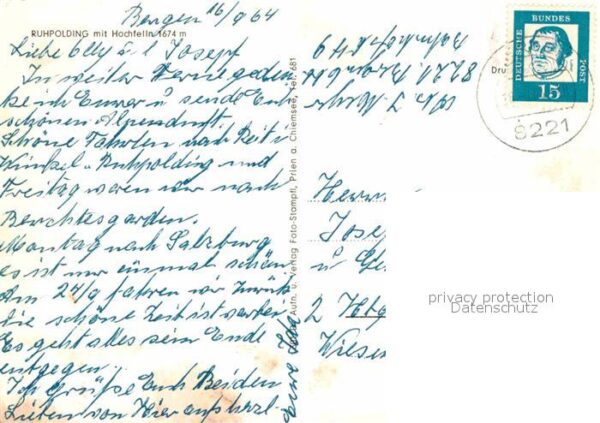 Bergen 16/9 64
RUHPOLDING mit Hochfelln 1674 m
Liebe Elly u. l Josef
In weiter Ferne geden
ke ich Eurer u sende Euch
schönen Alpenduft.
Schöne Fahrten nach Reit i
Winkel - Ruhpolding und
Freitag waren wir nach
Berchtesgaden.
Montag nach Salzburg
es ist nur einmal schön
Am 24/9 fahren wir zurück
die schöne Zeit ist vorbei
Es geht alles sein Ende
entgegen.
Ich grüße Euch Beiden
Lieben von Hier aufs herzl.
Eure
Autn. u. Verlag Foto-Stampfl, Prien a. Chiemsee, Tel. 681
8221 Bergen
Bahnhofstr
DEUTSCHE BUNDES POST
15
Dru
8221
Herrn
Josef
u
2 Hbg
Wiesen
privacy protection
Datenschutz